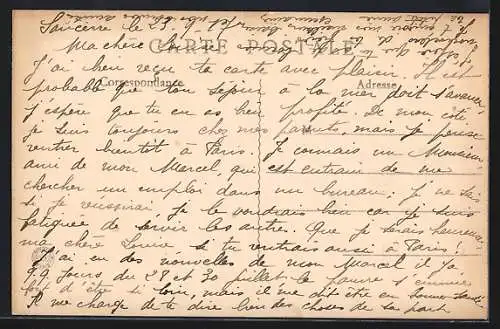 Sancerre le 25-
Ma chère Louise
CARTE POSTALE
J'ai bien reçu ta carte avec plaisir. Il est
Correspondance
Adresse
probable que ton séjour à la mer doit s'avancer
j'espère que tu en as bien profité. De mon côté
je suis toujours chez mes parents, mais je pense
rentrer bientôt à Paris. Je connais un Monsieur
ami de mon Marcel, qui est entrain de me
chercher un emploi dans un bureau. Je ne sais
si je réussirai. Je le voudrais bien car je suis
fatiguée de servir les autres. Que je serais heureuse
ma chère Louise, si tu rentrais aussi à Paris!
J'ai eu des nouvelles de mon Marcel il y a
qq. jours du 28 et 30 Juillet le pauvre s'ennuie
fort d'être si loin, mais il me dit être en bonne santé
Il me charge de te dire bien des choses de sa part